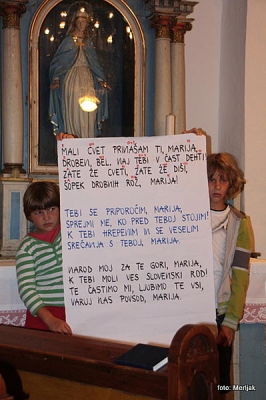 MALI CVET PRINAŠAM TI, MARIJA,
DROBEN, BEL. NAJ TEBI V ČAST DEHTI
ZATE ŽE CVETI, ZATE ŽE DIŠI,
ŠOPEK DROBNIH ROŽ, MARIJA!
TEBI SE PRIPOROČIM, MARIJA,
SPREJMI ME, KO PRED TEBOJ STOJIM!
K TEBI HREPENIM IN SE VESELIM
SREČANJA S TEBOJ, MARIJA.
NAROD MOJ ZA TE GORI, MARIJA,
K TEBI MOLI VES SLOVENSKI ROD!
TE ČASTIMO MI, LJUBIMO TE VSI,
VARUJ NAS POVSOD, MARIJA.
foto: Merjak